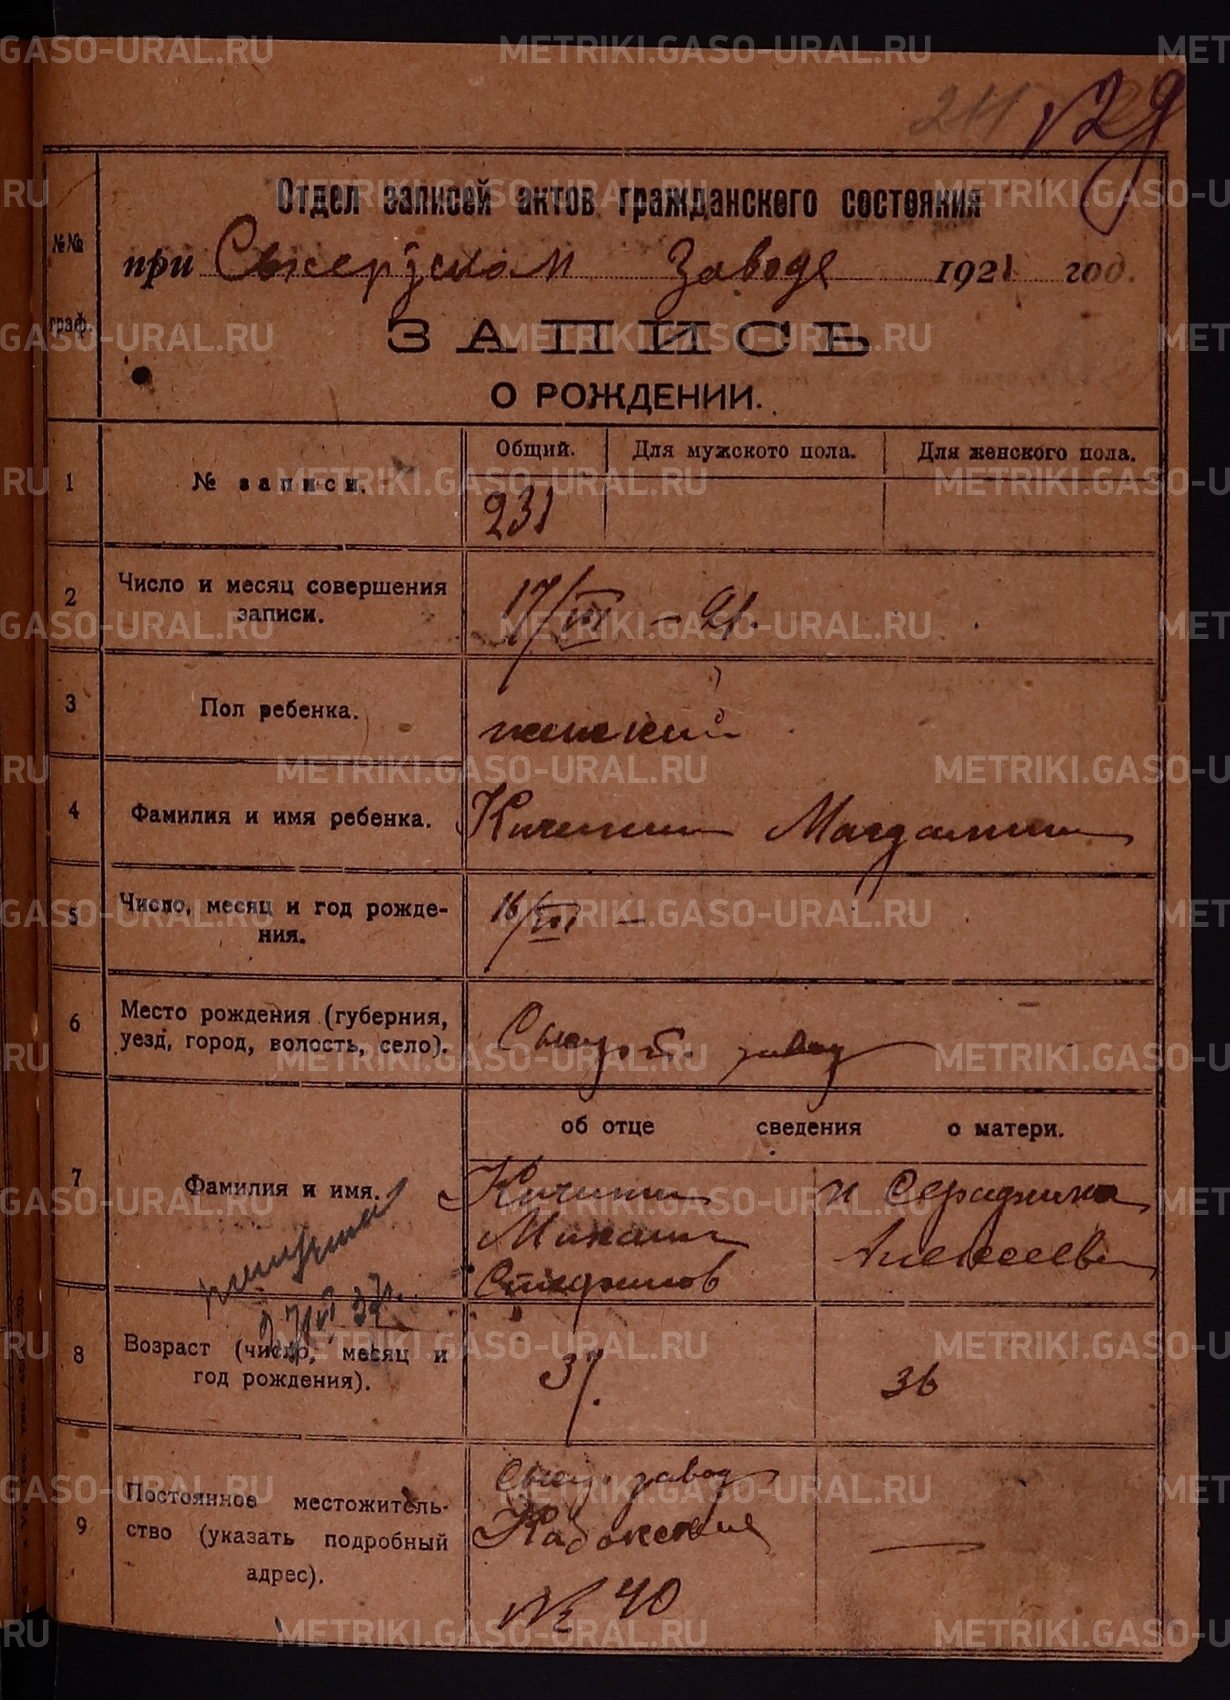 129
Отдел записей актов гражданского состояния
при Сысертском Заводе 1921 год.
№№ граф.
ЗАПИСЬ
О РОЖДЕНИИ.
Общий. Для мужского пола. Для женского пола.
1 № записи. 231
2 Число и месяц совершения
записи. 17/VIII - 21.
3 Пол ребенка. женский
4 Фамилия и имя ребенка. Магдалина
5 Число, месяц и год рожде-
ния. 16/VIII –
6 Место рождения (губерния,
уезд, город, волость, село). завод
об отце сведения о матери.
7 Фамилия и имя.
Михаил и Серафима
Алексеев
8 Возраст (число, месяц и
год рождения). 37. 36
9 Постоянное местожитель-
ство (указать подробный
адрес).
Сысер. завод
№ 40
METRIKI.GASO-URAL.RU